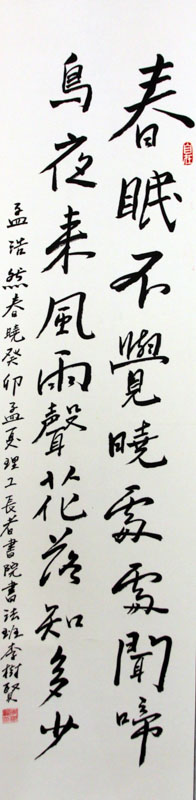 春眠不覺曉處處聞啼
鳥夜来風雨聲花落知多少
孟浩然春曉癸卯孟夏理工長者書院書法班李樹賢